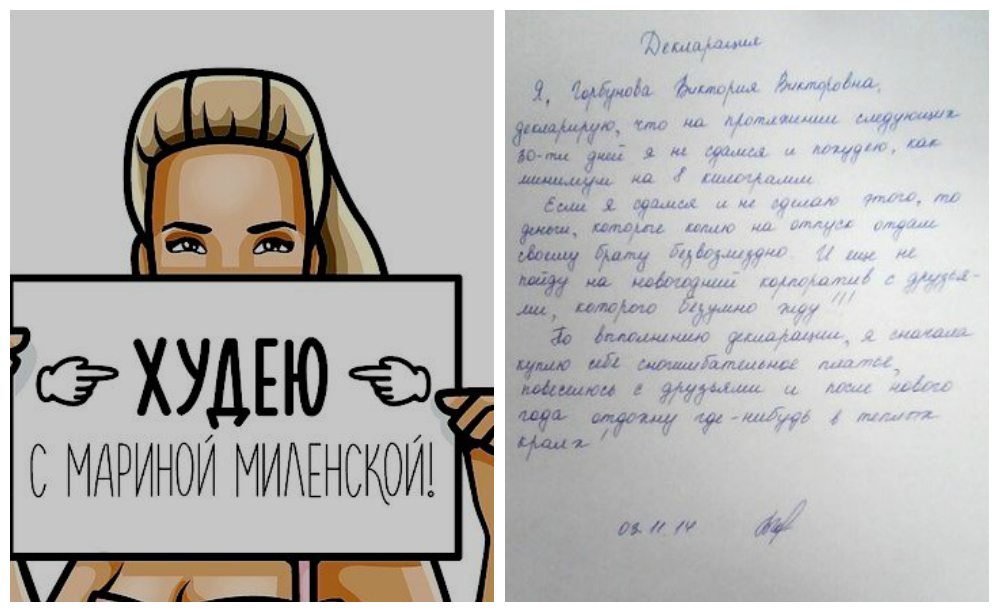 ХУДЕЮ
С МАРИНОЙ МИЛЕНСКОЙ!
Декларация
Я, Горбунова Виктория Викторовна,
декларирую, что на протяжении следующих
30-ти дней я не сдамся и похудею, как
минимум на 8 килограмм
Если я сдамся и не сделаю этого, то
деньги, которые коплю на отпуск отдам
своему брату безвозмездно. И еще не
пойду на новогодний корпоратив с друзья-
ми, которого безумно жду!!!
По выполнению декларации, я сначала
куплю себе сногшибательное платье,
повеселюсь с друзьями и после нового
года отдохну где-нибудь в теплых
краях!
03.11.14